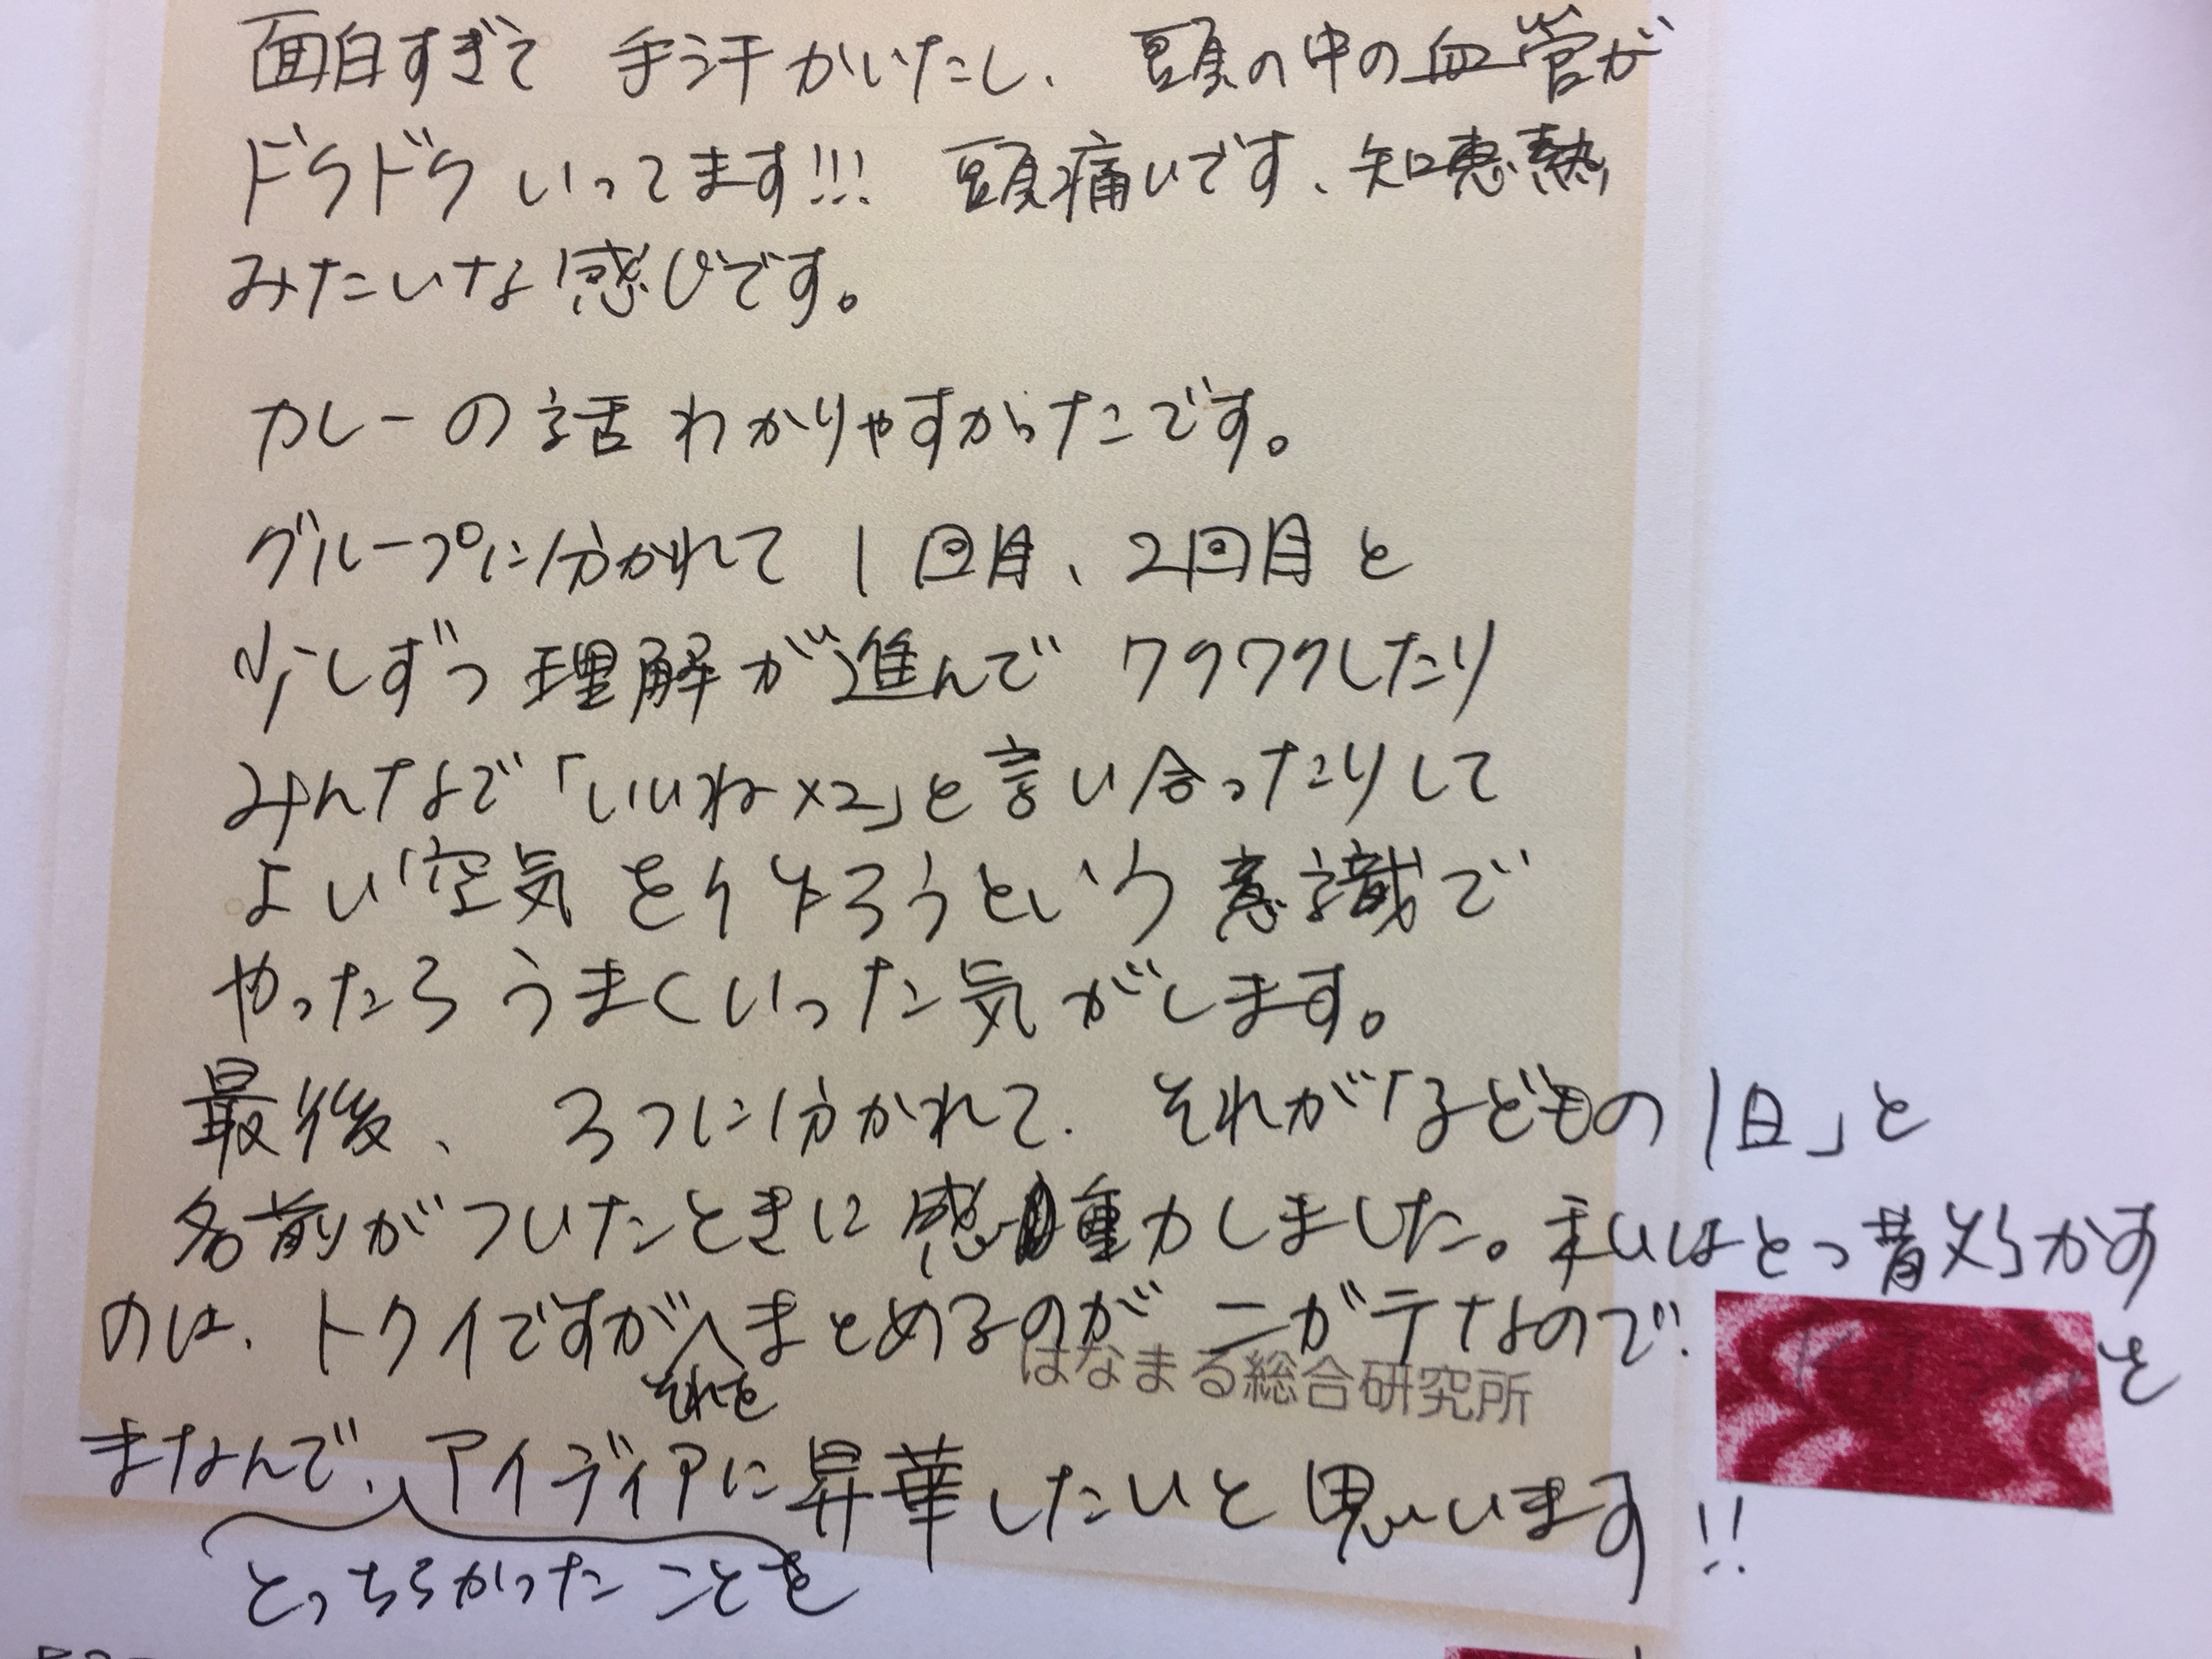 面白すぎて 手汗かいたし、頭の中の血管が
ドクドクいってます!!! 頭痛いです、知恵熱
みたいな感じです。
カレーの話わかりやすかったです。
グループに分かれて1回目、2回目と
少しずつ理解が進んでワクワクしたり
みんなで「いいね×2」と言い合ったりして
よい空気を作ろうという意識で
やったらうまくいった気がします。
最後、3つに分かれて、それが「子どもの1日」と
名前がついたときに感動しました。私はとっ散らかす
のは、トクイですがそれをまとめるのがニガテなので、
を
はなまる総合研究所
まなんで、とっちらかったことをアイディアに昇華したいと思います!!